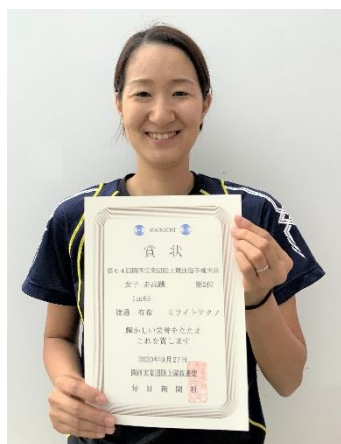 MAINICHI
賞状
第64回関西実業団陸上競技選手権大会
女子 走高跳 第2位
1m65
渡邉 有希 ミライトツタノ
輝かしい栄誉をたたえ
これを賞します
2020年9月27日
関西実業団陸上競技連盟
毎日新聞社